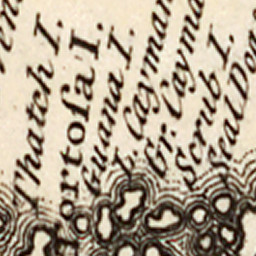 Thatch I.
ortoſa I.
Guana I.
I. Cayman
Gr. Cayma
Scrub I.
Seal Dog